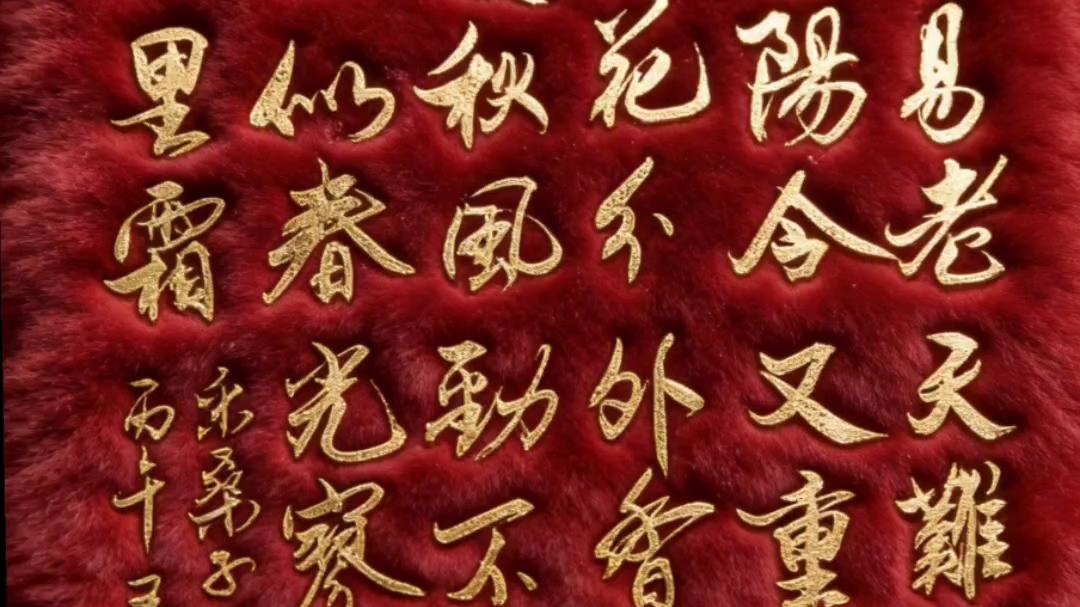 易老天難
陽今又重
花分外香
秋風勁不
似春光寥
里霜
采桑子
丙午